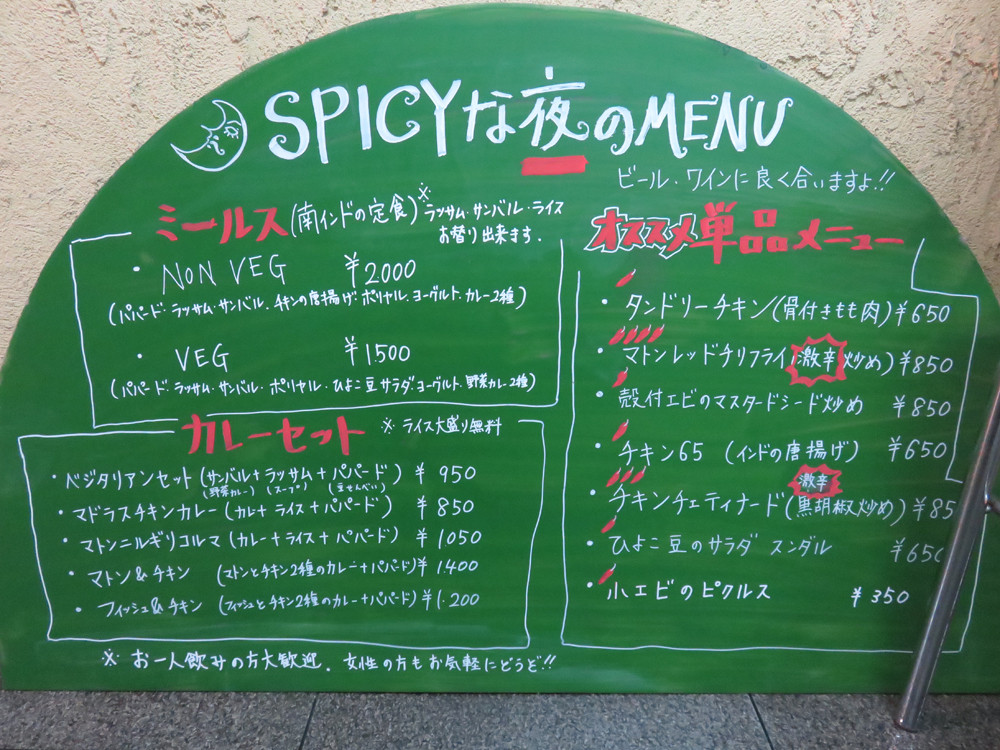 SPICYな夜のMENU
ビール・ワインに良く合いますよ!!
ミールス(南インドの定食)※ラッサム・サンバル・ライス
お替り出来ます.
・NON VEG ¥2000
(パパード・ラッサム・サンバル・チキンの唐揚げ・ポリヤル・ヨーグルト・カレー2種)
・VEG ¥1500
(パパード・ラッサム・サンバル・ポリヤル・ひよこ豆サラダ・ヨーグルト・野菜カレー2種)
カレーセット ※ライス大盛り無料
・ベジタリアンセット(サンバル+ラッサム+パパード) ¥950
(野菜カレー) (スープ) (豆せんべい)
・マドラスチキンカレー(カレー+ライス+パパード) ¥850
・マトンニルギリコルマ(カレー+ライス+パパード) ¥1050
・マトン&チキン (マトンとチキン2種のカレー+パパード) ¥1.400
・フィッシュ&チキン (フィッシュとチキン2種のカレー+パパード) ¥1.200
オススメ単品メニュー
・タンドリーチキン(骨付きもも肉) ¥650
・マトンレッドチリフライ(激辛炒め) ¥850
・殻付エビのマスタードシード炒め ¥850
・チキン65 (インドの唐揚げ) ¥650
激辛
・チキンチェティナード(黒胡椒炒め) ¥85
・ひよこ豆のサラダ スンダル ¥650
・小エビのピクルス ¥350
※ お一人飲みの方大歓迎. 女性の方もお気軽にどうぞ!!